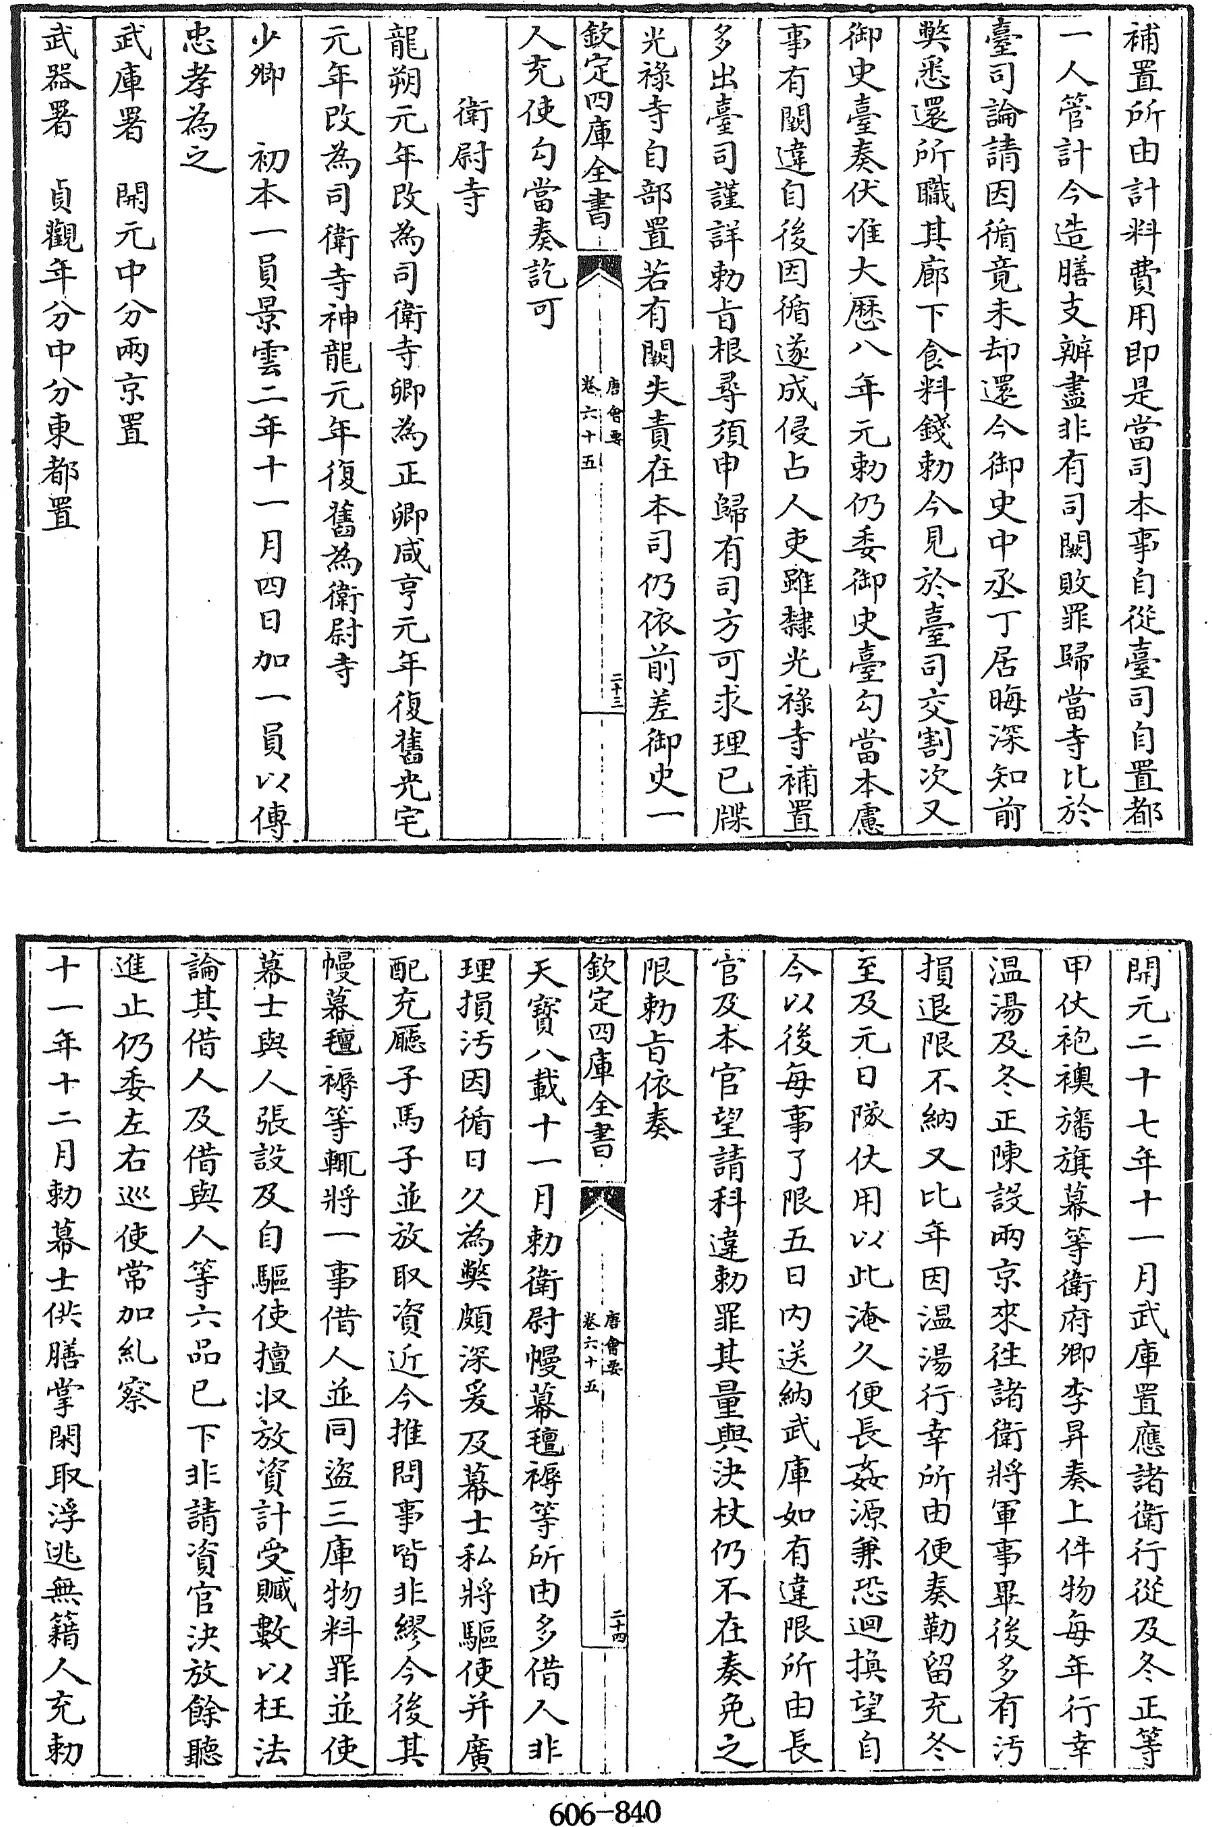 補置所由計料費用即是當司本事自從臺司自置都
一人管計今造膳支辦盡非有司闕敗罪歸當寺比於
臺司論請因循竟未却還今御史中丞丁居晦深知前
弊悉還所職其廊下食料錢勅今見於臺司交割次又
御史臺奏伏准大厯八年元勅仍委御史臺勾當本慮
事有闕違自後因循遂成侵占人吏雖隸光祿寺補置
多出臺司謹詳勅旨根尋須申歸有司方可求理已牒
光祿寺自部置若有闕失責在本司仍依前差御史一
欽定四庫全書
唐會要
卷六十五
二十三
人充使勾當奏訖可
衛尉寺
龍朔元年改為司衛寺卿為正卿咸亨元年復舊光宅
元年改為司衛寺神龍元年復舊為衛尉寺
少卿 初本一員景雲二年十一月四日加一員以傳
忠孝為之
武庫署 開元中分兩京置
武器署 貞觀年分中分東都置
開元二十七年十一月武庫置應諸衛行從及冬正等
甲仗袍襖旛旗幕等衛府卿李昇奏上件物每年行幸
溫湯及冬正陳設兩京來往諸衛將軍事畢後多有汚
損退限不納又比年因溫湯行幸所由便奏勒留充冬
至及元日隊仗用以此淹久便長姦源兼恐迴換望自
今以後每事了限五日內送納武庫如有違限所由長
官及本官望請科違勅罪其量與決杖仍不在奏免之
限勅旨依奏
欽定四庫全書
唐會要
卷六十五
二十四
天寶八載十一月勅衛尉幔幕氊褥等所由多借人非
理損汚因循日久為弊頗深爰及幕士私將驅使并廣
配充廳子馬子並放取資近今推問事皆非繆今後其
幔幕氊褥等輒將一事借人並同盜三庫物科罪並使
幕士與人張設及自驅使擅収放資計受贓數以枉法
論其借人及借與人等六品已下非請資官決放餘聽
進止仍委左右巡使常加糺察
十一年十二月勅幕士供膳掌閑取浮逃無籍人充勅
606-840